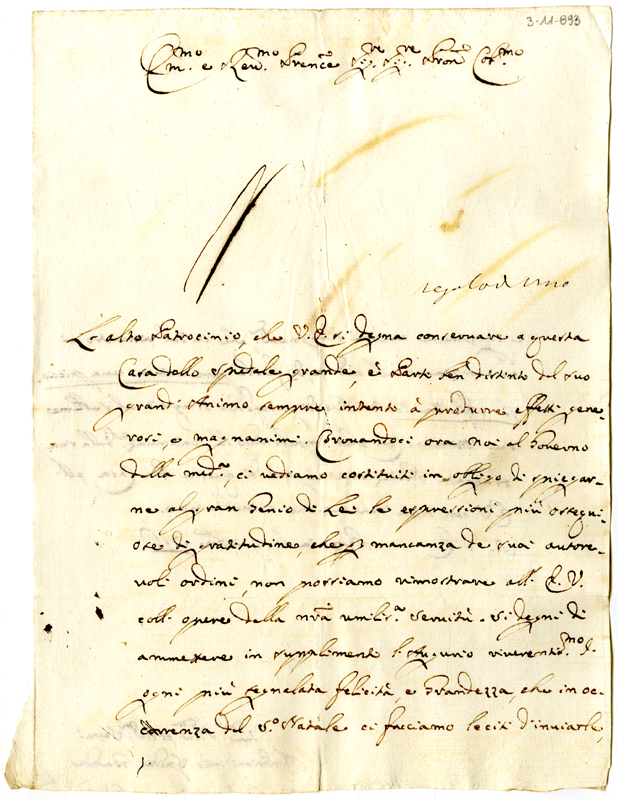 3-11-893
Em.mo e Rev.mo Prencĕ Sig.re Sig.re Pron Col.mo
L'alto Patrocinio, che V. E. si degna conservare a questa
Casa dello spedale grande, è Parto ben distinto del suo
grand'Animo sempre intento à produrre effetti gene-
rosi, e magnanimi. Trovandoci ora noi al Governo
della med.a, ci vediamo costituiti in obligo di spiegar-
ne al gran Genio di Lei le espressioni più ossequi-
ose di gratitudine, che p mancanza de suoi autore-
voli ordini, non possiamo rimostrare all' E. V.
coll' opere della nrã umilis.a servitù. Si degni di
ammettere in supplimento l'augurio riverentis.mo d'
ogni più segnalata felicità, e Grandezza, che in oc-
correnza del S.o Natale ci facciamo leciti d'inviarle,